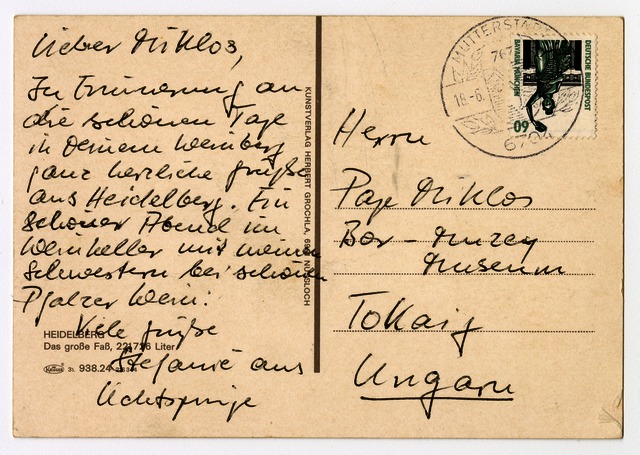 Lieber Miklos,
In Erinnerung an
die schönen Tage
in Deinem Weinberg
ganz herzliche Grüße
aus Heidelberg. Ein
schöner Abend im
Weinkeller mit meinen
Schwestern bei schönen
Pfälzer Wein.
Viele Grüße
Stefanie aus
HEIDELBERG
Das große Faß, 221726 Liter
938.24
KUNSTVERLAG HERBERT GROCHLA, NUSSLOCH
MUTTERSTADT
18.-6.
6704
DEUTSCHE BUNDESPOST
BAVARIA MÜNCHEN
60
Herrn
Pap Miklos
Bor-Muzey
Museum
Tokaij
Ungarn